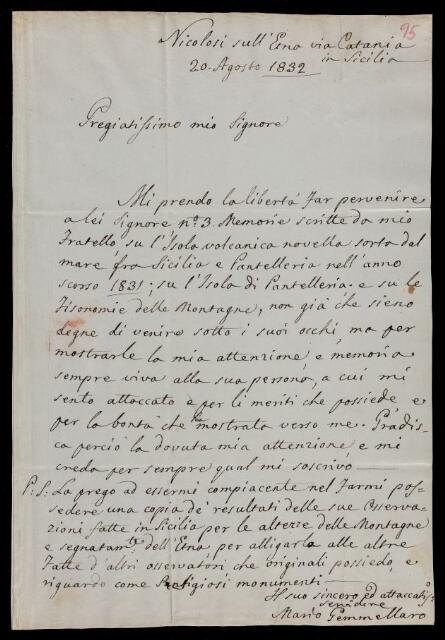 95
Nicolosi sull'Etna via Catania
in Sicilia
20. Agosto 1832
Pregiatissimo mio Signore
Mi prendo la libertá far pervenire
a lei Signore n.º 3. Memorie scritte da mio
Fratello su l'Isola volcanica novella sorta dal
mare fra Sicilia e Pantelleria nell'anno
scorso 1831; su l'Isola di Pantelleria. e su le
Fisonomie delle Montagne, non giá che sieno
degne di venire sotto i suoi occhi, ma per
mostrarle la mia attenzione, e memoria
sempre viva alla sua persona, a cui mi
sento attaccato e per li meriti che possiede e
per la bontà che ha mostrata verso me. Gradis-
ca perciò la dovuta mia attenzione e mi
creda per sempre qual mi soscrivo
P: S: La prego ad essermi compiacente nel farmi pos-
sedere una copia de' resultati delle sue Osserva-
zioni fatte in Sicilia per le alterze delle Montagne
e segnatam.te dell'Etna, per alligarla alle altre
fatte d'altri osservatori che originali possiedo, e
riguardo come religiosi monumenti
Il suo sincero ed attaccatiss.o
servidore
Mario Gemmellaro